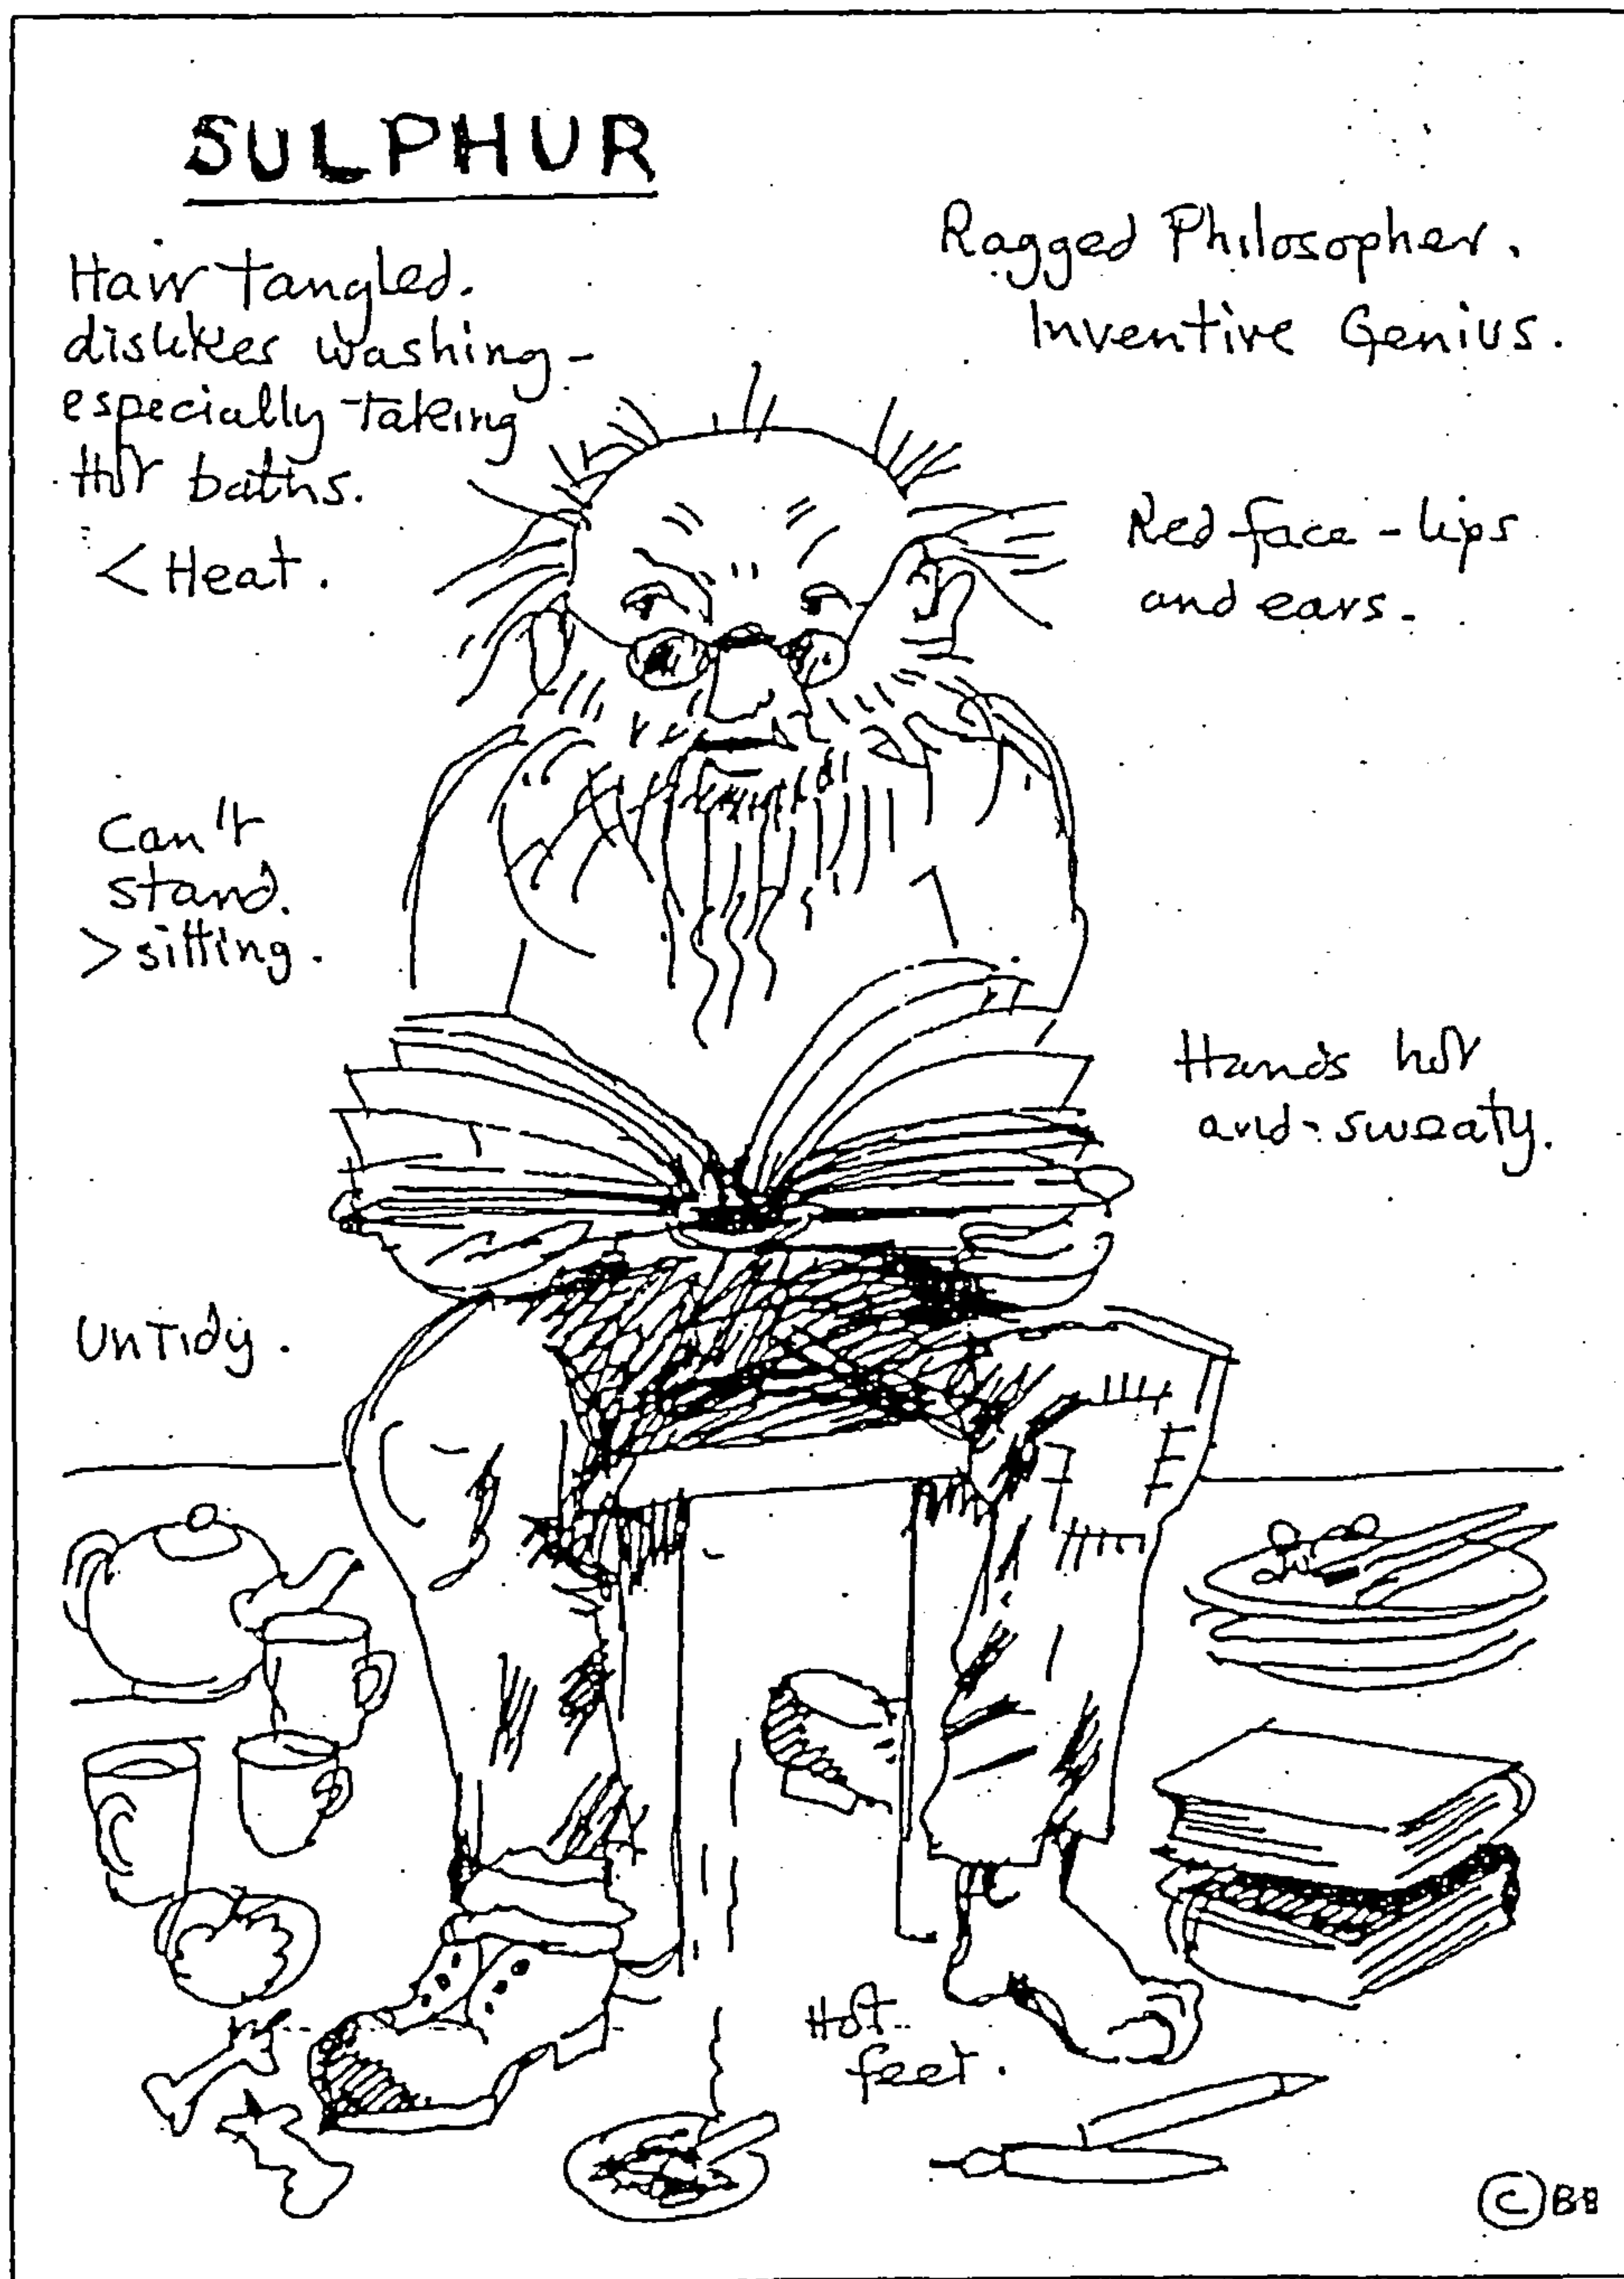 SULPHUR
Ragged Philosopher.
Inventive Genius.
Hair tangled.
dislikes washing -
especially taking
Hot baths.
< Heat.
Red face - lips
and ears.
Can't
stand.
> sitting.
Hands hot
and sweaty.
Untidy.
Hot
feet.